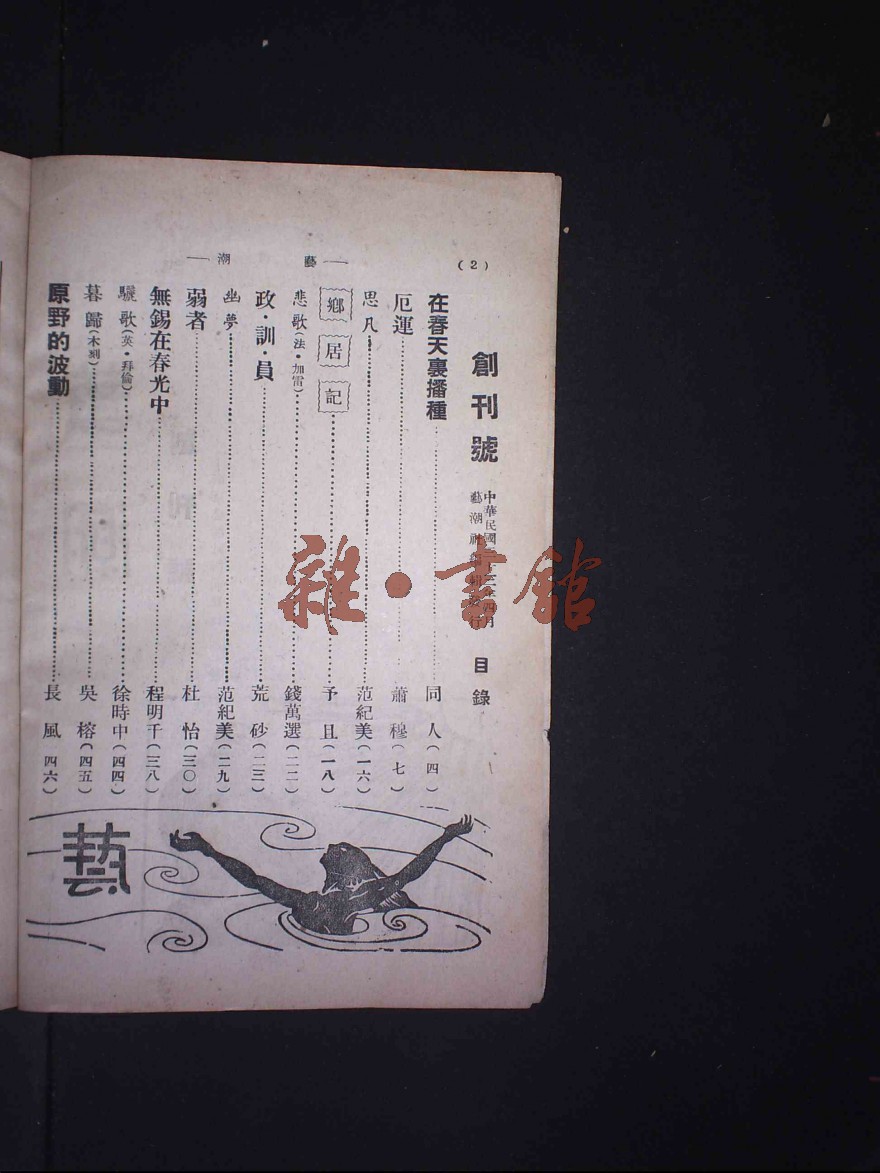 (2)
——藝潮——
創刊號
中華民國三十三年四月
藝潮社編輯發行
目錄
在春天裏播種……同人(四)
厄運……蕭穆(七)
思凡……范紀美(一六)
鄉居記……予且(一八)
悲歌(法·加雷)……錢萬選(二二)
政·訓·員……荒砂(二三)
幽夢……范紀美(二九)
弱者……杜怡(三〇)
無錫在春光中……程明千(三八)
驪歌(英·拜倫)……徐時中(四四)
暮歸(木刻)……吳榕(四五)
原野的波動……長風(四六)
藝
雜·書館